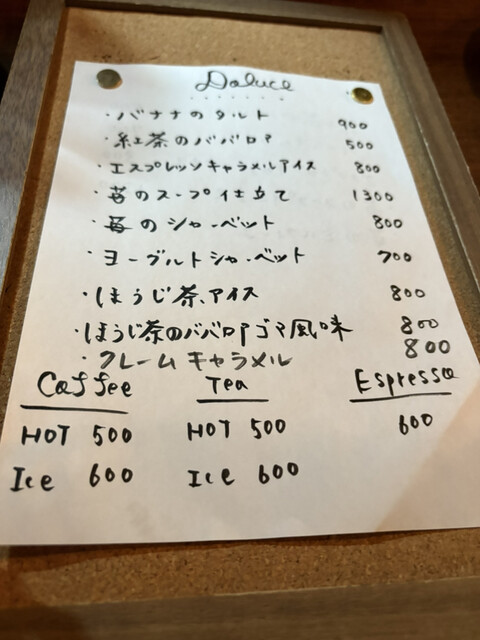 Doluce
・バナナのタルト 900
・紅茶のババロア 500
・エスプレッソキャラメルアイス 800
・苺のスープ仕立て 1300
・苺のシャーベット 800
・ヨーグルトシャーベット 700
・ほうじ茶アイス 800
・ほうじ茶のババロアゴマ風味 800
・クレームキャラメル 800
Coffee Tea Espresso
HOT 500 HOT 500 600
Ice 600 Ice 600